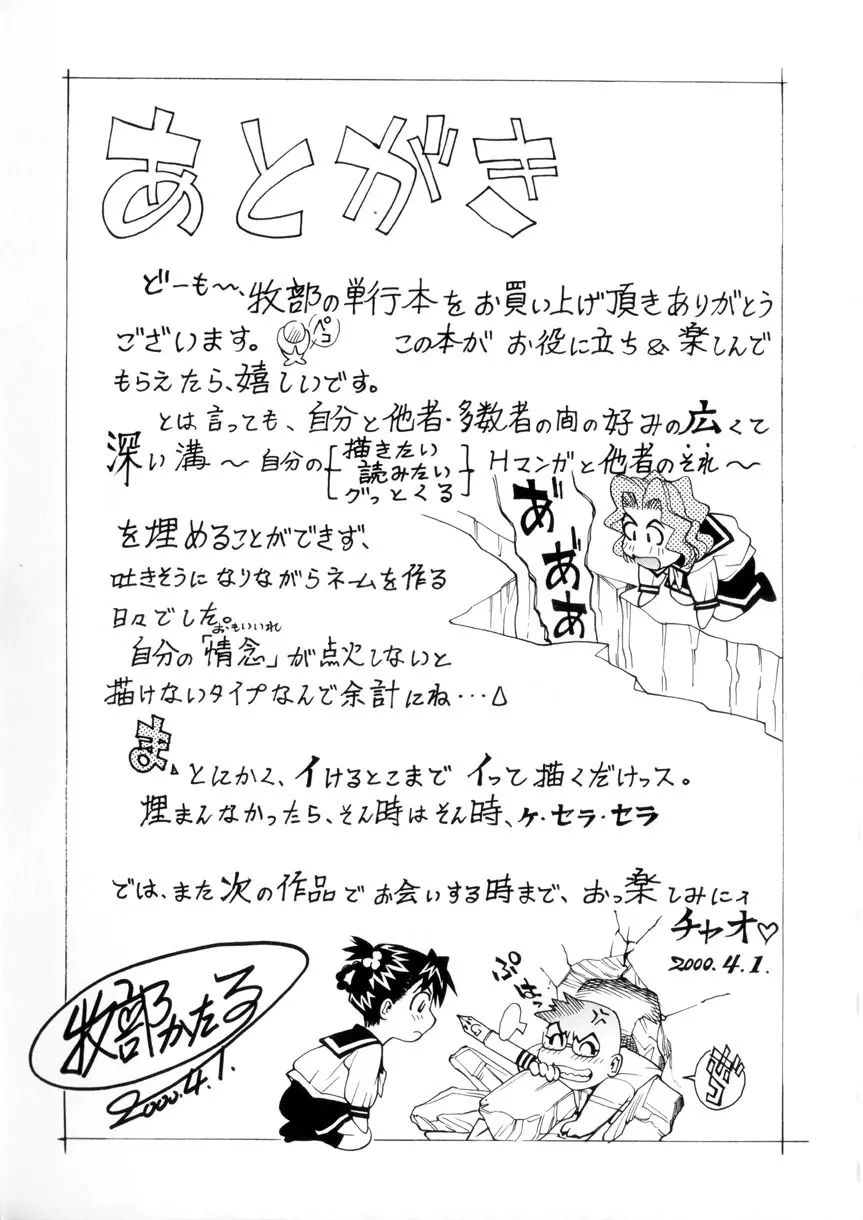 あとがき
どーも〜、牧部の単行本をお買い上げ頂きありがとう
ございます。ペコ この本がお役に立ち&楽しんで
もらえたら、嬉しいです。
とは言っても、自分と他者・多数者の間の好みの広くて
深い溝〜自分の[描きたい
読みたい
グッとくる]Hマンガと他者のそれ〜
を埋めることができず、
吐きそうになりながらネームを作る
日々でした。
おもいいれ
自分の「情念」が点火しないと
描けないタイプなんで余計にね…
あ゛
あ゛あ゛
ま、とにかく、イけるとこまでイって描くだけっス。
埋まんなかったら、そん時はそん時、ケ・セラ・セラ
では、また次の作品でお会いする時まで、おっ楽しみにィ
チャオ♡
2000.4.1.
牧部かたる
2000.4.1.